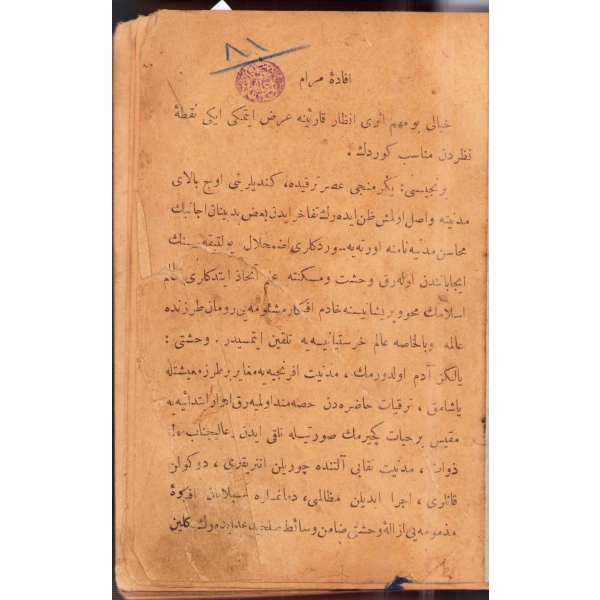 ٨١
افادهٔ مرام
خیالی بو مهم اثری انظار قارئینه عرض ایتمکی ایکی نقطهٔ
نظردن مناسب کوردك .
برنجیسی : یکرمنجی عصر ترقیده، کندیلرینی اوج بالای
مدنیته واصل اولمش ظن ایده‌رك تفاخر ایدن بعض بدبینان اجانبك
محاسن مدنیه نامنه اورته‌یه سوردکاری اضمحلال پولتیقه‌سینك
ایجاباتندن اوله‌رق وحشت ومسکنته علم اتخاذ ایتدکاری عالم
اسلامك محو و پریشانیسنه خادم افکار مشئومه‌یی رومان طرزنده
عالمه وبالخاصه عالم خرستیانیه‌یه تلقین ایتمسیدر . وحشتی :
یالکز آدم اولدورمك ، مدنیت افرنجیه‌یه مغایر بر طرز معیشتله
یاشامق ، ترقیات حاضره‌دن حصه‌مند اولمیه‌رق ادوار ابتدائیه‌یه
مقیس بر حیات کچیرمك صورتیله تلقی ایدن عالیجناب
ذوات ، مدنیت نقابی آلتنده چوریلن انتریقه‌لری ، دوکولن
قانلری ، اجرا ایدیلن مظالمی ،
مذمومه‌یی ازالهٔ وحشتی ضامن وسائط عد ایده‌رك کلین